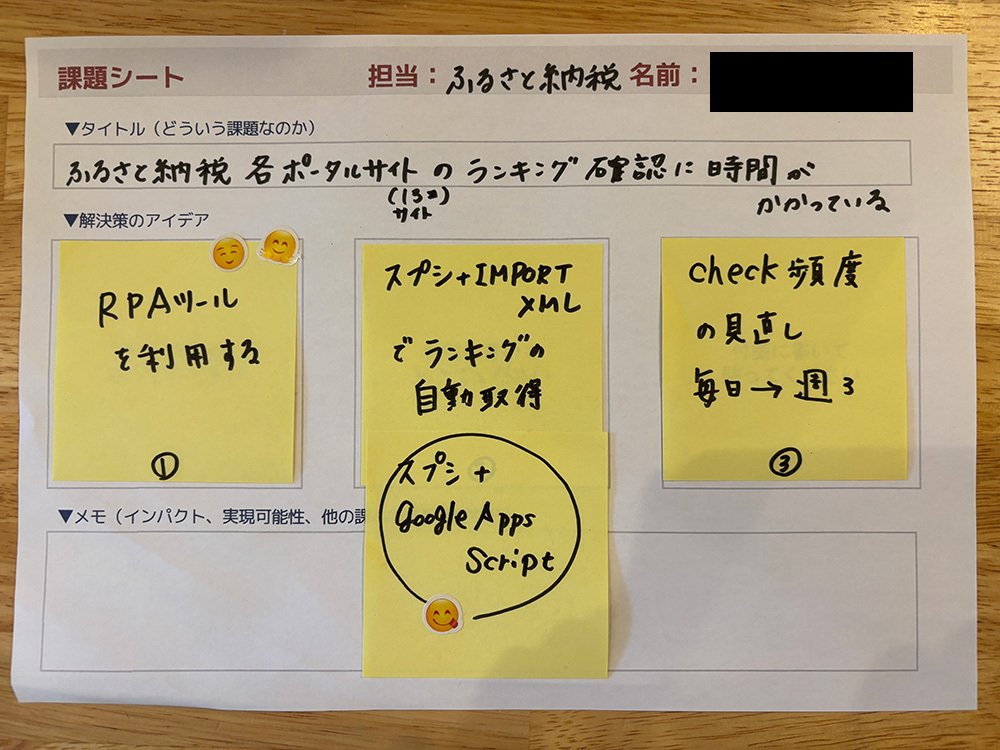 課題シート 担当：ふるさと納税 名前：
▼タイトル（どういう課題なのか）
ふるさと納税 各ポータルサイトのランキング確認に時間が
かかっている
(13コ)
サイト
▼解決策のアイデア
RPAツール
を利用する
①
スプシ+IMPORT
XML
でランキングの
自動取得
スプシ+
Google Apps
Script
check頻度
の見直し
毎日→週3
③
▼メモ（インパクト、実現可能性、他の課